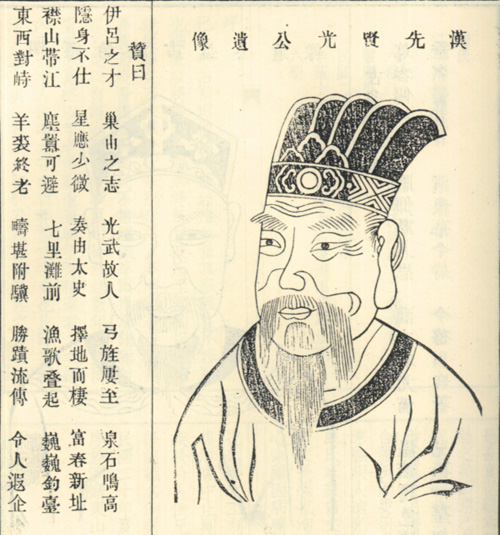 漢先賢光公遺像
贊曰
伊呂之才 巢由之志 光武故人 弓旌屢至 泉石鳴高
隱身不仕 星應少微 奏由太史 擇地而棲 富春新址
襟山帶江 塵囂可避 七里灘前 漁歌叠起 巍巍釣臺
東西對峙 羊裘終老 疇堪附驥 勝蹟流傳 令人遐企